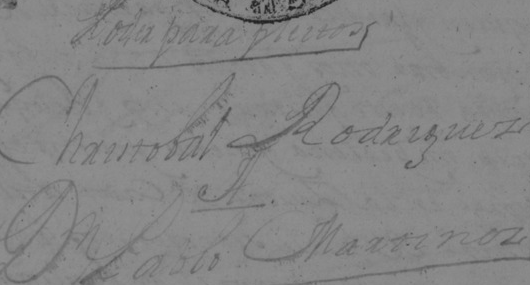 Poder para pleitos
Christobal Rodriguez
A
D.n Pablo Martinez